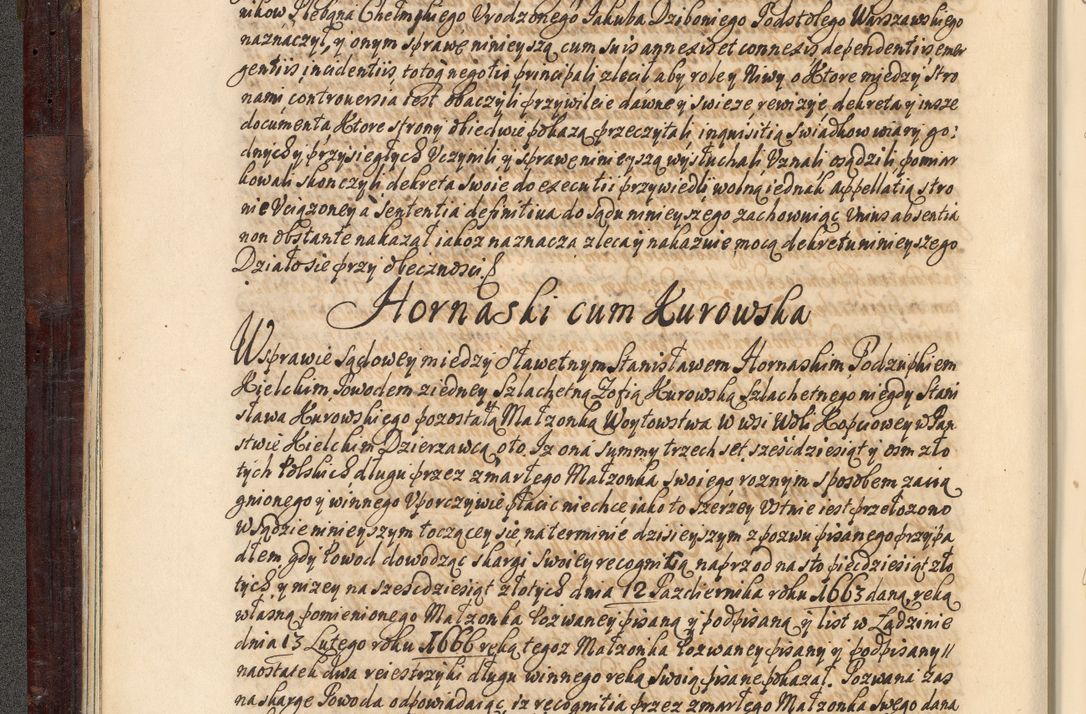 ników Plebana Chełmskiego Urodzonego Jakuba Dziboniego Podstolego Warszawskiego
naznaczył, y onym sprawę ninieyszą cum suis annexis et connexis dependentiis emer
gentiis incidentiis totoq negotio principali zlecił aby role y Niwy o Ktore między Stro
nami controuersia iest obaczyli przywileie dawne y swieże rewizye dekreta y insze
documenta Ktore strony obiedwie pokażą przeczytali inquisitią swiadkow wiary go:
dnych y przysięgłych Uczynili y sprawę ninieyszą wysłuchali Uznali osądzili pomiar
kowali skonczyli dekreta swoie do executii przywiedli wolną iednak appellatią stro
nie Uciązoney a Sententia definitiua do sądu ninieyszego zachowuiąc Unius absentia
non obstante nakazał iakoz naznacza zleca y nakazuie mocą dekretu ninieyszego
Działo się przy obecznosci
Hornaski cum Kurowska
W sprawie sądowey między Sławetnym Stanisławem Hornaskim Podzupkiem
Kielckim Powodem z iedney Szlachetną Zofią Kurowską Szlachetnego niegdy Stani
sława Kurowskiego pozostałą Małzonką Woytowstwa w wsi Woli Kopciowey w Pań
stwie Kielckim Dzierzawcą oto. Iz ona summy trzech set szesćdziesiąt y osm zło
tych Polskich długu przez zmarłego Małzonka swoiego roznym sposobem zacią
gnionego y winnego Uporczywie płacic niechce iako to szerzey Ustnie iest przełozono
W sądzie ninieyszym toczącey się na terminie dzisieyszym z pozwu pisanego przypa
dłem, gdy Powod dowodząc skargi swoiey recognitią naprzod na sto pięcdziesiąt zło
tych y nizey na szesćdziesiąt złotych dnia 12 Pazdziernika roku 1663 daną ręką
własną pomienionego Małzonka Pozwaney pisaną y podpisaną y list w Ladzinie
dnia 13 Lutego roku 1666 ręką tegoz Małzonka Pozwaney pisany y podpisany //
naostatek dwa reiestrzyki długu winnego ręką swoią pisane pokazał. Pozwana zas
na skargę Powoda odpowiadaiąc iz recognitia przez zmarłego Małzonka swego dana